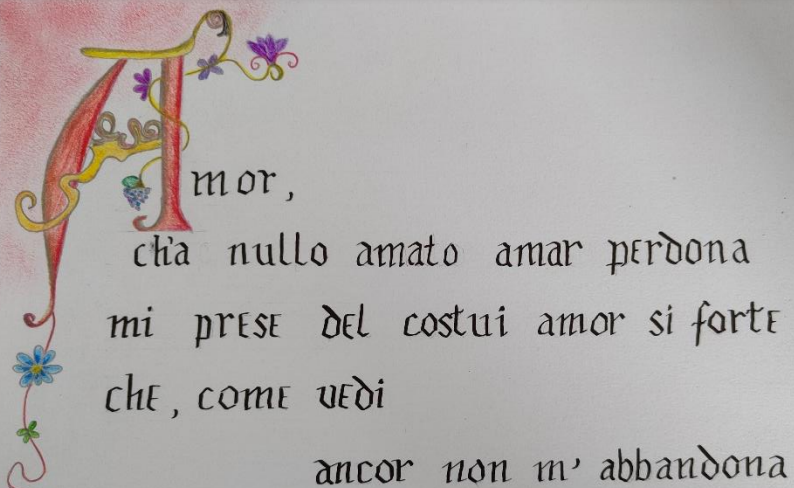 Amor,
ch'a nullo amato amar perdona
mi prese del costui amor si forte
che, come vedi
ancor non m' abbandona